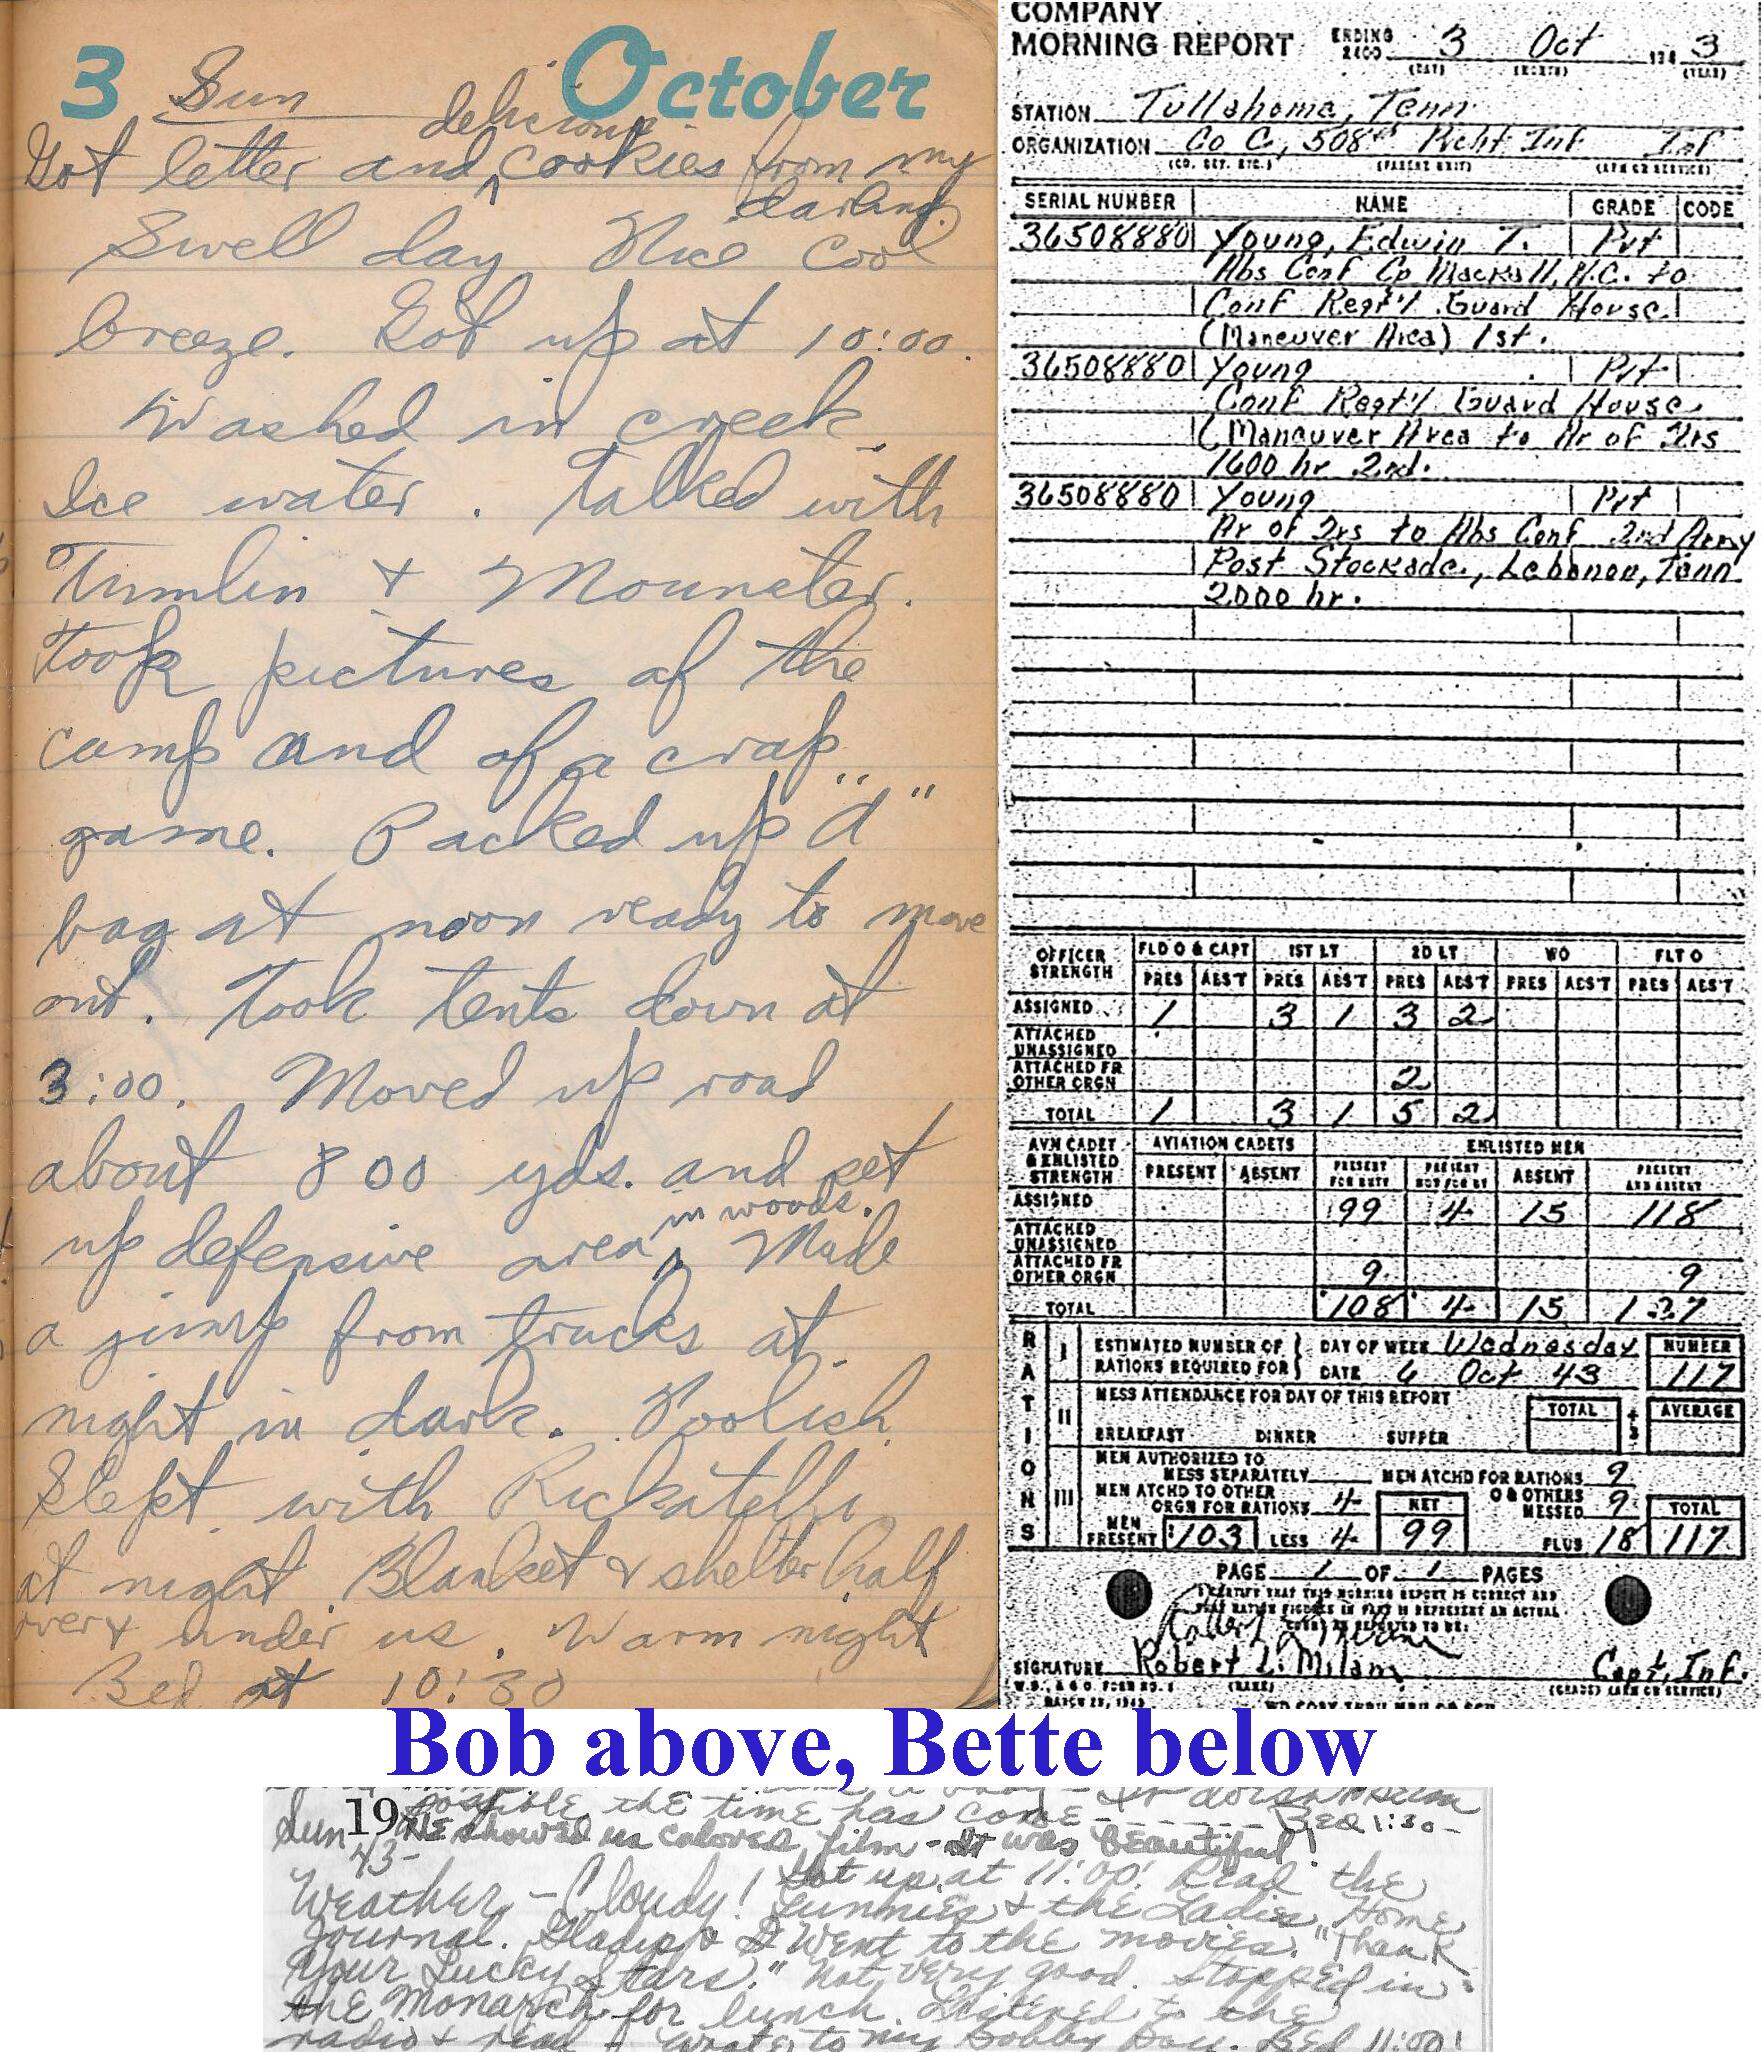 3 Sun October
delicious
Got letter and ^ cookies from my
darling.
Swell day. Nice cool
breeze. Got up at 10:00.
Washed in creek.
Ice water. Talked with
Tumlin +
Took pictures of the
camp and of a crap
game. Packed up "A"
bag at noon ready to move
out. Took tents down at
3:00. Moved up road
about 800 yds. and set
in woods.
up defensive area ^ Made
a jump from trucks at
night in dark. Foolish
Slept with Rickatelli
at night. Blanket + shelter half
over + under us. Warm night
Bed at 10:30
COMPANY
MORNING REPORT ENDING 2400 3 Oct 1943
(DAY) (MONTH) (YEAR)
STATION Tullahoma, Tenn
ORGANIZATION Co C, 508th Prcht Inf Inf
(CO. DET. ETC.) (PARENT UNIT) (ARM OR SERVICE)
SERIAL NUMBER NAME GRADE CODE
36508880 Young, Edwin T. Pvt
Abs Conf Cp Mackall, N.C. to
Conf Regt'l Guard House
(Maneuver Area) 1st.
36508880 Young Pvt
Conf Regt'l Guard House
(Maneuver Area to Ar of Qrs
1600 hr 2nd.
36508880 Young Pvt
Ar of Qrs to Abs Conf 2nd Army
Post Stockade, Lebanon, Tenn
2000 hr.
OFFICER STRENGTH FLD O & CAPT 1ST LT 2D LT WO FLT O
PRES ABS'T PRES ABS'T PRES ABS'T PRES ABS'T PRES ABS'T
ASSIGNED 1 3 1 3 2
ATTACHED UNASSIGNED
ATTACHED FR OTHER ORGN 2
TOTAL 1 3 1 5 2
AVN CADET & ENLISTED STRENGTH AVIATION CADETS ENLISTED MEN
PRESENT ABSENT PRESENT FOR DUTY PRESENT NOT FOR DY ABSENT PRESENT AND ABSENT
ASSIGNED 99 4 15 118
ATTACHED UNASSIGNED
ATTACHED FR OTHER ORGN 9 9
TOTAL 108 4 15 127
RATIONS
I ESTIMATED NUMBER OF RATIONS REQUIRED FOR DAY OF WEEK Wednesday NUMBER
DATE 6 Oct 43 117
II MESS ATTENDANCE FOR DAY OF THIS REPORT TOTAL ÷ 3 AVERAGE
BREAKFAST DINNER SUPPER
III MEN AUTHORIZED TO MESS SEPARATELY MEN ATCHD FOR RATIONS 9
MEN ATCHD TO OTHER ORGN FOR RATIONS 4 NET O & OTHERS MESSED 9 TOTAL
MEN PRESENT 103 LESS 4 99 PLUS 18 117
PAGE 1 OF 1 PAGES
I CERTIFY THAT THIS MORNING REPORT IS CORRECT AND
SIGNATURE Robert L. Milam Capt, Inf.
(NAME) (GRADE) (ARM OR SERVICE)
W.D., A.G.O. FORM NO. 1
MARCH 25, 1943
Bob above, Bette below
possible the time has come - - - - - - Bed 1:30-
Sun 1943- He showed us colored film - It was beautiful!
Weather - Cloudy! Got up at 11:00! Read the
Funnies + the Ladies Home
Journal. Gladys & I went to the movies. "Thank
Your Lucky Stars." Not very good. Stopped in
the Monarch for lunch. Listened to the
radio + read - Wrote to my Bobby Boy. Bed 11:00!